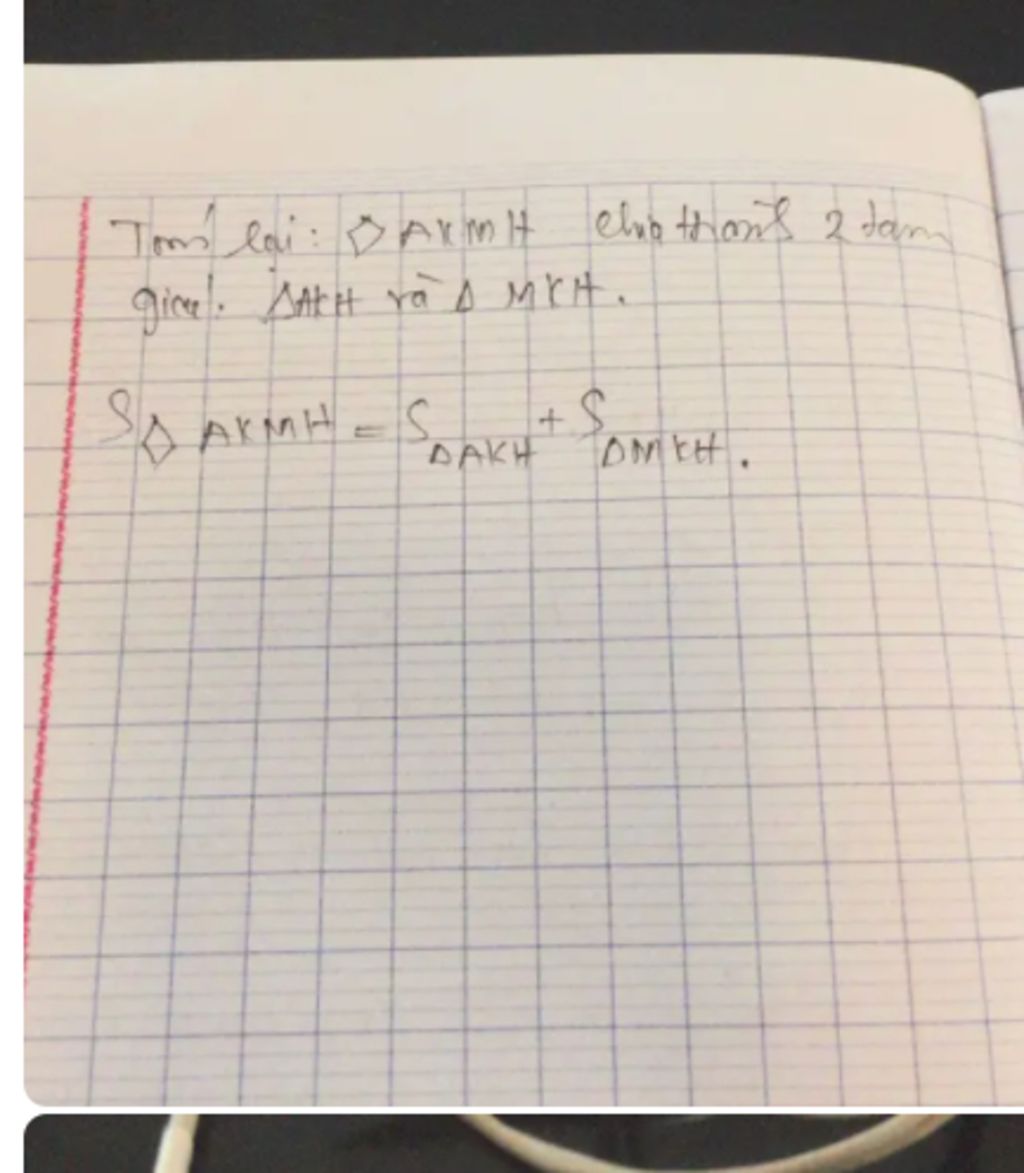 Tóm lại: ◇ AKMH chia thành 2 tam
giác. ΔAKH và Δ MKH.
S◇ AKMH = SΔAKH + SΔMKH.